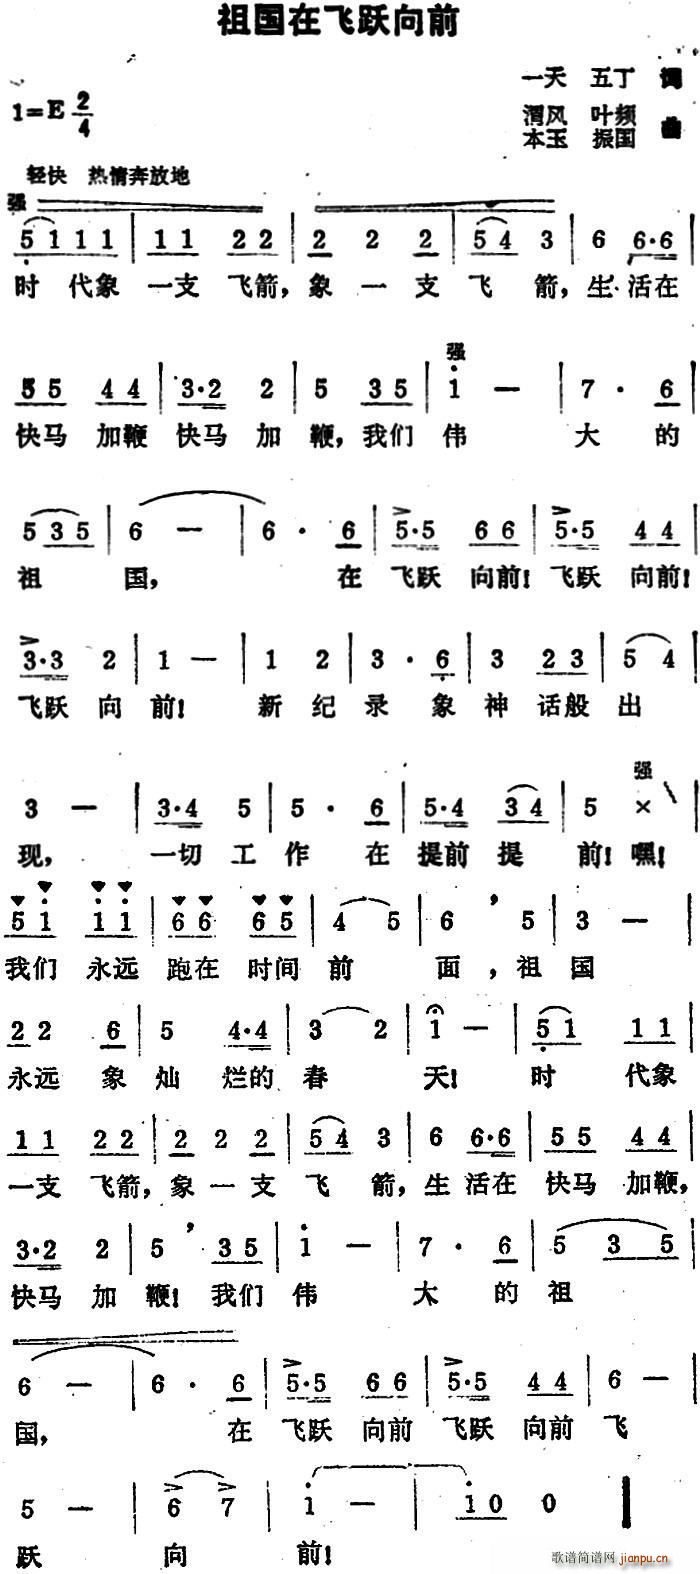 祖国在飞跃向前
一天 五丁 词
1=E 2/4
渭风 叶频
本玉 振国 曲
轻快 热情奔放地
强
5 1 1 1 | 1 1 2 2 | 2 2 2 | 5 4 3 | 6 6·6 |
时 代象 一支 飞箭，象 一 支 飞 箭，生 活在
强
5 5 4 4 | 3·2 2 | 5 3 5 | 1 — | 7 · 6 |
快马 加鞭 快马 加 鞭，我们 伟 大 的
5 3 5 | 6 — | 6 · 6 | 5·5 6 6 | 5·5 4 4 |
祖 国， 在 飞跃 向前！飞跃 向前！
3·3 2 | 1 — | 1 2 | 3 · 6 | 3 2 3 | 5 4 |
飞跃 向 前！ 新 纪 录 象 神 话般 出
强
3 — | 3·4 5 | 5 · 6 | 5·4 3 4 | 5 × |
现， 一切 工 作 在 提前 提 前！嘿！
5 1 1 1 | 6 6 6 5 | 4 5 | 6 ’ 5 | 3 — |
我们 永远 跑在 时间 前 面，祖 国
2 2 6 | 5 4·4 | 3 2 | 1 — | 5 1 1 1 |
永远 象 灿 烂的 春 天！ 时 代象
1 1 2 2 | 2 2 2 | 5 4 3 | 6 6·6 | 5 5 4 4 |
一支 飞箭，象 一 支 飞 箭，生 活在 快马 加鞭，
3·2 2 | 5 ’ 3 5 | 1 — | 7 · 6 | 5 3 5 |
快马 加 鞭！我们 伟 大 的 祖
6 — | 6 · 6 | 5·5 6 6 | 5·5 4 4 | 6 — |
国， 在 飞跃 向前 飞跃 向前 飞
5 — | 6 7 | 1 — | 1 0 0
跃 向 前！
歌谱简谱网 jianpu.cn